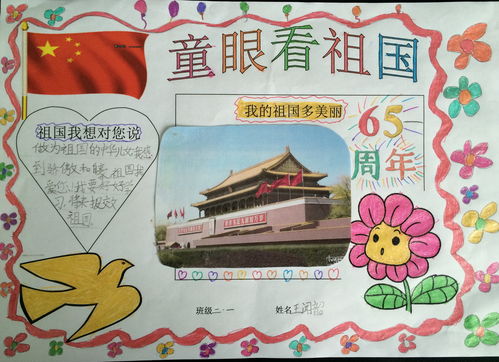 童眼看祖国
祖国我想对您说
做为祖国的中华儿女我感
到骄傲和
祖国我
爱您!我要好好学
习将来报效
祖国
我的祖国多美丽
65
周年
班级二·一
姓名王